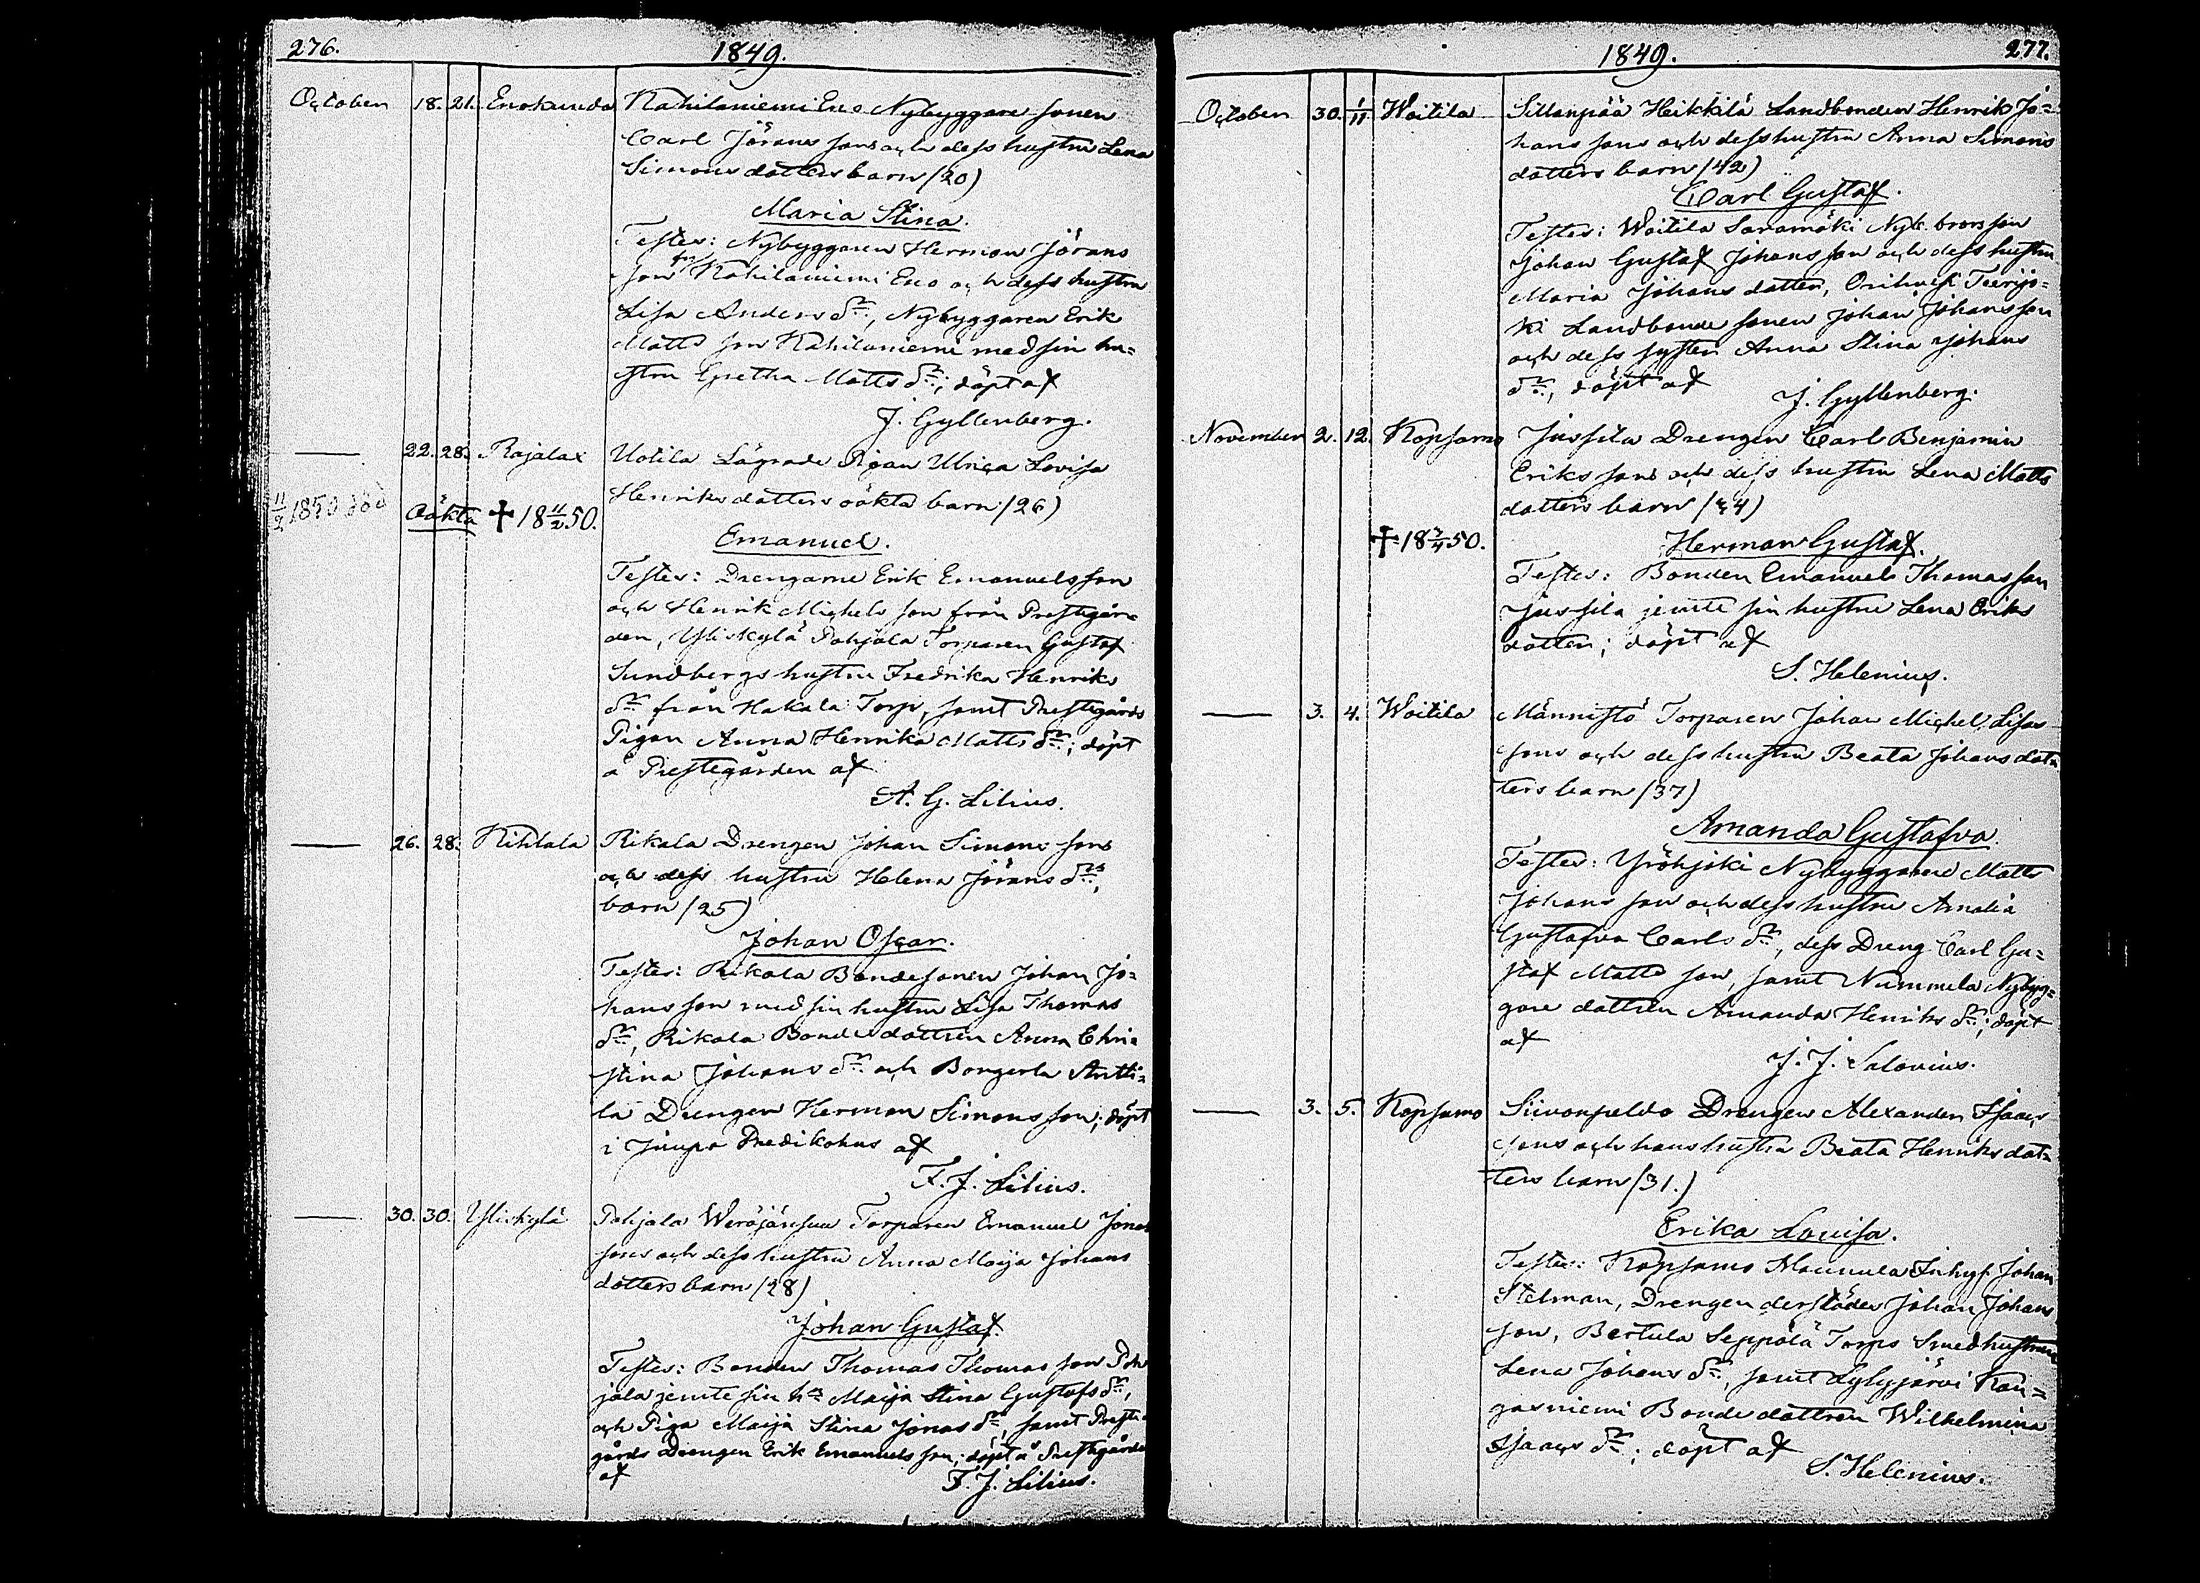 276.
1849.
October 18. 21. Enokunda Kahilaniemi Eno Nybyggare sonen
Carl Jörans sons och dess hustru Lena
Simons dotters barn (20)
Maria Stina.
Testes: Nybyggaren Herman Jörans
son fr Kahilaniemi Eno och dess hustru
Lisa Anders dr, Nybyggaren Erik
Matts son Kahilaniemi med sin hu=
stru Gretha Matts dr; döpt af
J. Gyllenberg.
— 22. 28. Rajalax Uotila Lägrade Pigan Ulrica Lovisa
Henriks dotters oäkta barn (26)
11/2 1850 död
Oäkta † 18 11/2 50.
Emanuel.
Testes: Drengarne Erik Emanuelsson
och Henrik Michels son från Prestgår=
den, Yliskylä Pohjala Torparen Gustaf
Sundbergs hustru Fredrika Henriks
dr från Hakala Torp, samt Prestgårds
Pigan Anna Henrika Matts dr; döpt
å Prestegården af
A. G. Lilius.
— 26. 28. Rihtala Rikala Drengen Johan Simons sons
och dess hustru Helena Jörans drs,
barn (25)
Johan Oscar.
Testes: Rikala Bondesonen Johan Jo=
hans son med sin hustru Lisa Thomas
dr, Rikala Bondedottren Anna Chri=
stina Johans dr och Bongerla Antti=
la Drengen Herman Simons son; döpt
i Jiupa Predikohus af
F. J. Lilius.
— 30. 30. Yliskylä Pohjala Torparen Emanuel Jonas
sons och dess hustru Anna Maija Johans
dotters barn (28)
Johan Gustaf.
Testes: Bonden Thomas Thomas son Poh
jala jemte sin hu Maija Stina Gustafs dr,
och Piga Maija Stina Jonas dr, samt Preste
gårds Drengen Erik Emanuels son; döpt å Prestgården
af
F. J. Lilius.
1849.
277.
October 30. 1/11 Woitila Sillanpää Heikkilä Landbonden Henrik Jo=
hans sons och dess hustru Anna Simons
dotters barn (42)
Carl Gustaf.
Testes: Woitila Saramäki Nyb. brorsson
Johan Gustaf Johans son och dess hustru
Maria Johans dotter, Orihvesi Teerijo=
ki Landbonde sonen Johan Johansson
och dess syster Anna Stina Johans
dr, döpt af
J. Gyllenberg.
November 2. 12. Kopsamo Jussila Drengen Carl Benjamin
Eriks sons och dess hustru Lena Matts
dotters barn (24)
† 18 7/4 50.
Herman Gustaf.
Testes: Bonden Emanuel Thomas son
Jussila jemte sin hustru Lena Eriks
dotter; döpt af
S. Helenius.
— 3. 4. Woitila Männistö Torparen Johan Michel Lisas
sons och dess hustru Beata Johans dot=
ters barn (37)
Amanda Gustafva.
Testes: Yröhjoki Nybyggaren Matts
Johans son och dess hustru Amalia
Gustafva Carls dr, dess Dreng Carl Gu=
staf Matts son, samt Nummela Nybyg=
gare dottren Amanda Henriks dr; döpt
af
J. J. Salovius.
— 3. 5. Kopsamo Siivonpeldo Drengen Alexander Isaacs
sons och hans hustru Beata Henriks dot=
ters barn (31.)
Erika Lovisa.
Testes: Kopsamo Maunula Inhys. Johan
Stelman, Drengen derstädes Johan Johans
son, Bertula Seppälä Torps Smedhustrun
Lena Johans dr, samt Lylyjärvi Kan=
gasniemi Bonde dottren Wilhelmina
Isaacs dr; döpt af
S. Helenius.